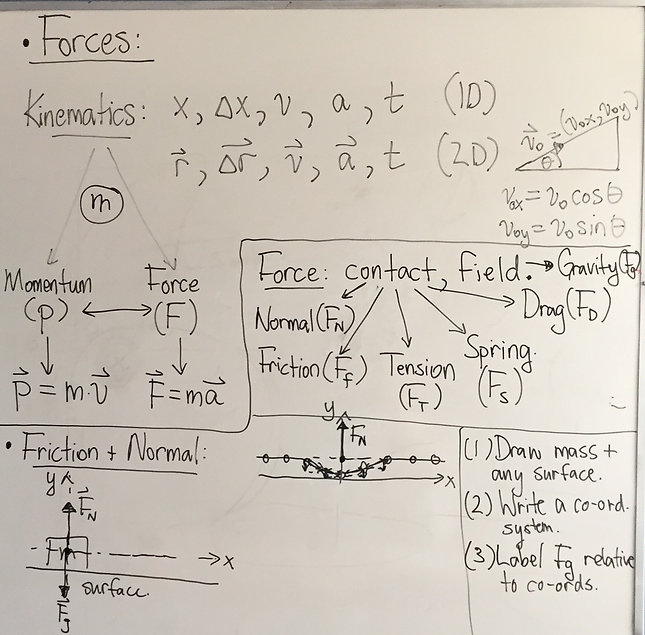 • Forces:
Kinematics: x, Δx, v, a, t (1D)
r⃗, Δr⃗, v⃗, a⃗, t (2D)
v⃗₀ = (v₀x, v₀y)
θ
v₀x = v₀cosθ
v₀y = v₀sinθ
m
Momentum (p) ↔ Force (F)
p⃗ = m·v⃗
F⃗ = ma⃗
Force: contact, field. → Gravity (Fg)
Normal (FN)
Drag (FD)
Friction (Ff)
Tension (FT)
Spring. (FS)
• Friction + Normal:
y
F⃗N
x
surface.
F⃗g
y
FN
x
(1) Draw mass + any surface.
(2) Write a co-ord. system.
(3) Label Fg relative to co-ords.